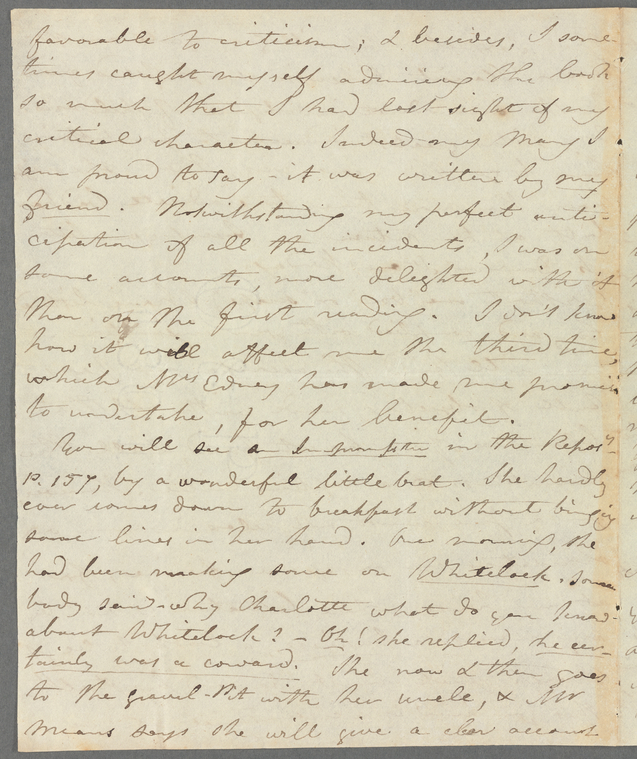 favorable to criticism; & besides, I some-
times caught myself admiring the book
so much that I had lost sight of my
critical character. Indeed my Mary I
am proud to say - it was written by my
friend. Notwithstanding my perfect anti-
cipation of all the incidents, I was on
some accounts, more delighted with it
than on the first reading. I don't know
how it will affect me the third time,
which Mrs Edney has made me promise
to undertake, for her benefit.
You will see an Impromptu in the Reposy
p. 157, by a wonderful little brat. She hardly
ever comes down to breakfast without bringing
some lines in her hand. One morning, she
had been making some on Whitelock. Some
body said - why Charlotte what do you know
about Whitelock? - Oh! she replied, he cer-
tainly was a coward. She now & then goes
to the gravel-Pit with her uncle, & Mr
Means says she will give a clear account